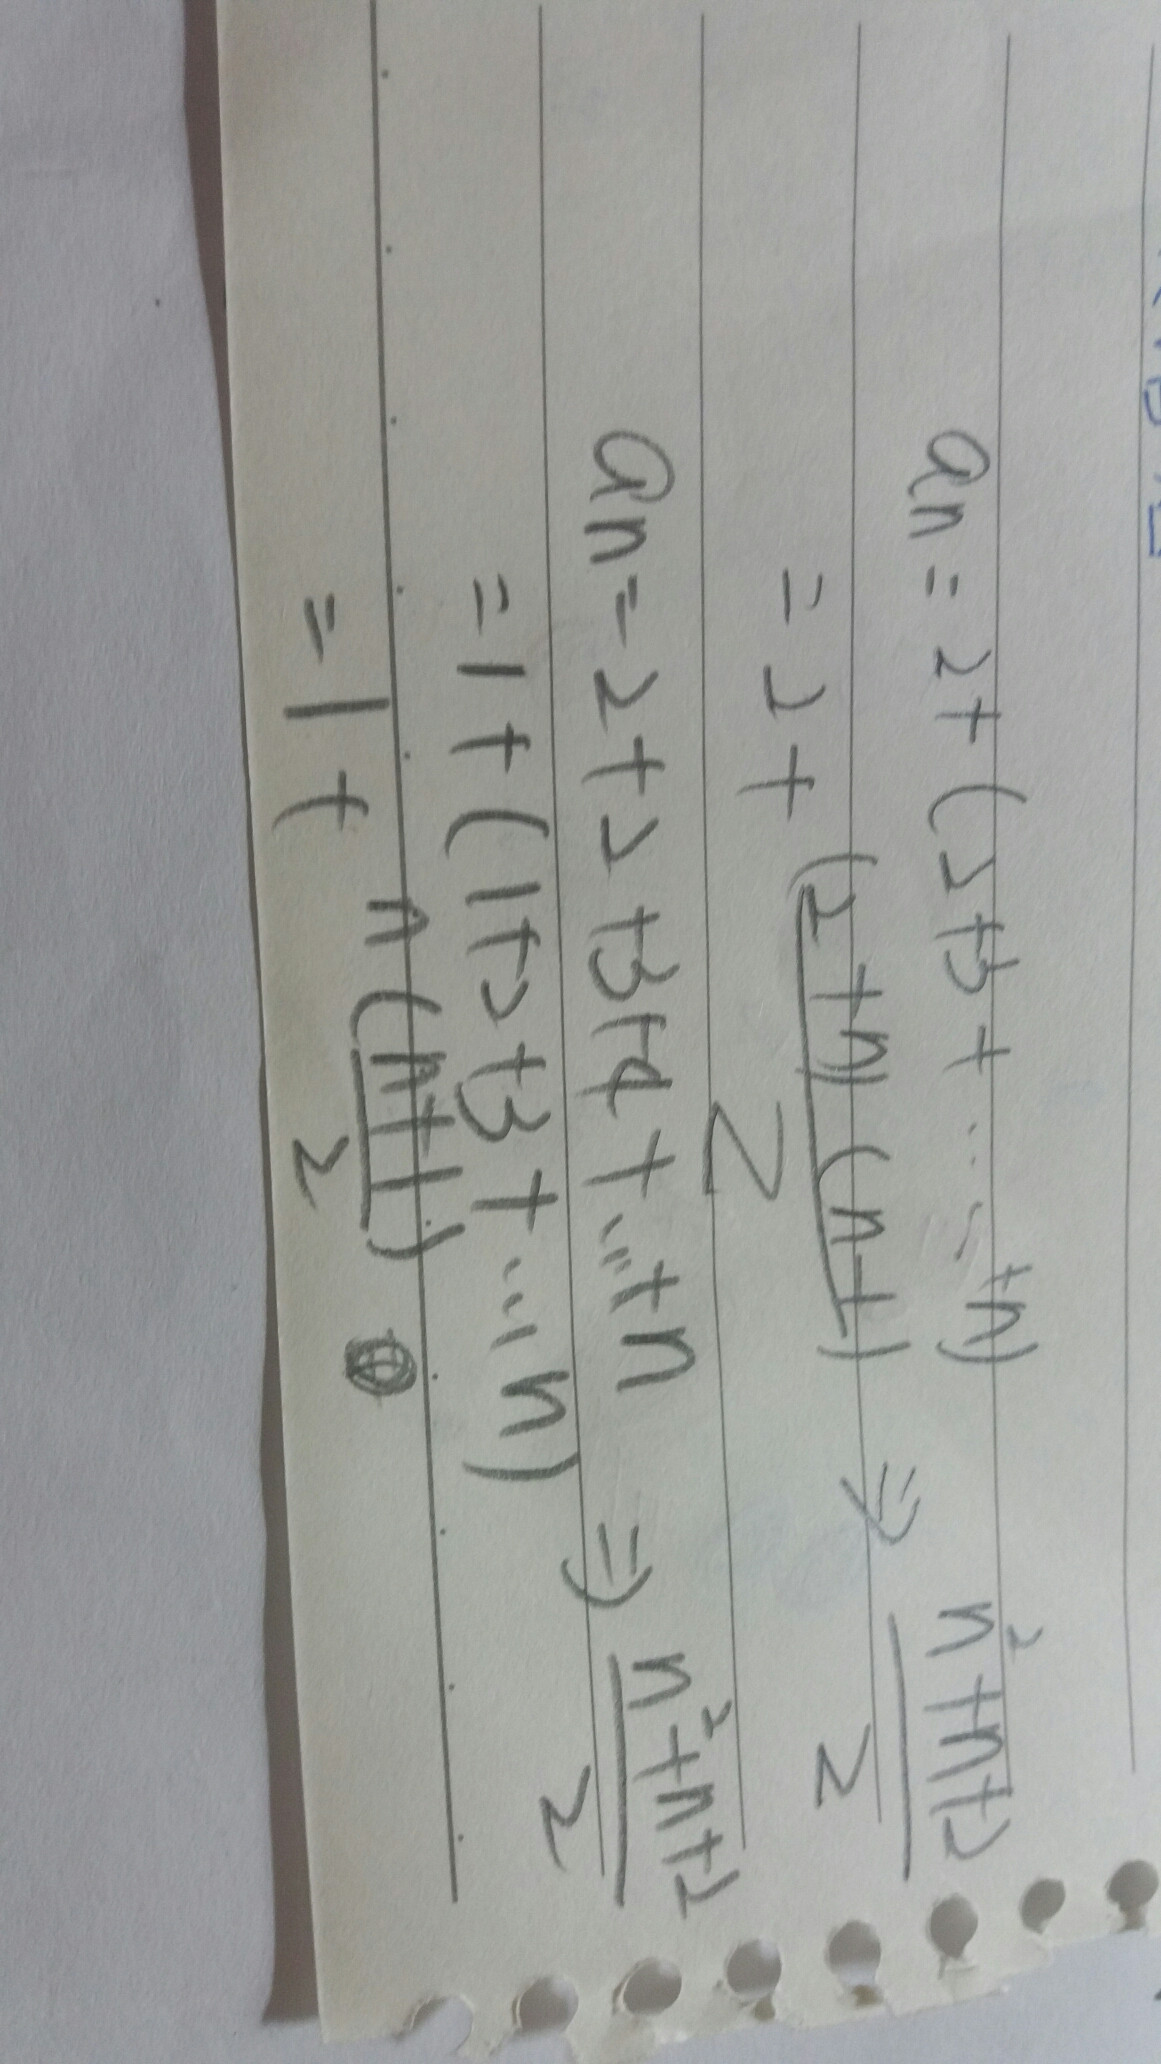 an = 2+(2+3+...+n)
= 2+(2+n)(n-1)/2 ⇒ n²+n+2/2
an = 2+2+3+4+...+n
= 1+(1+2+3+...n) ⇒ n²+n+2/2
= 1+n(n+1)/2